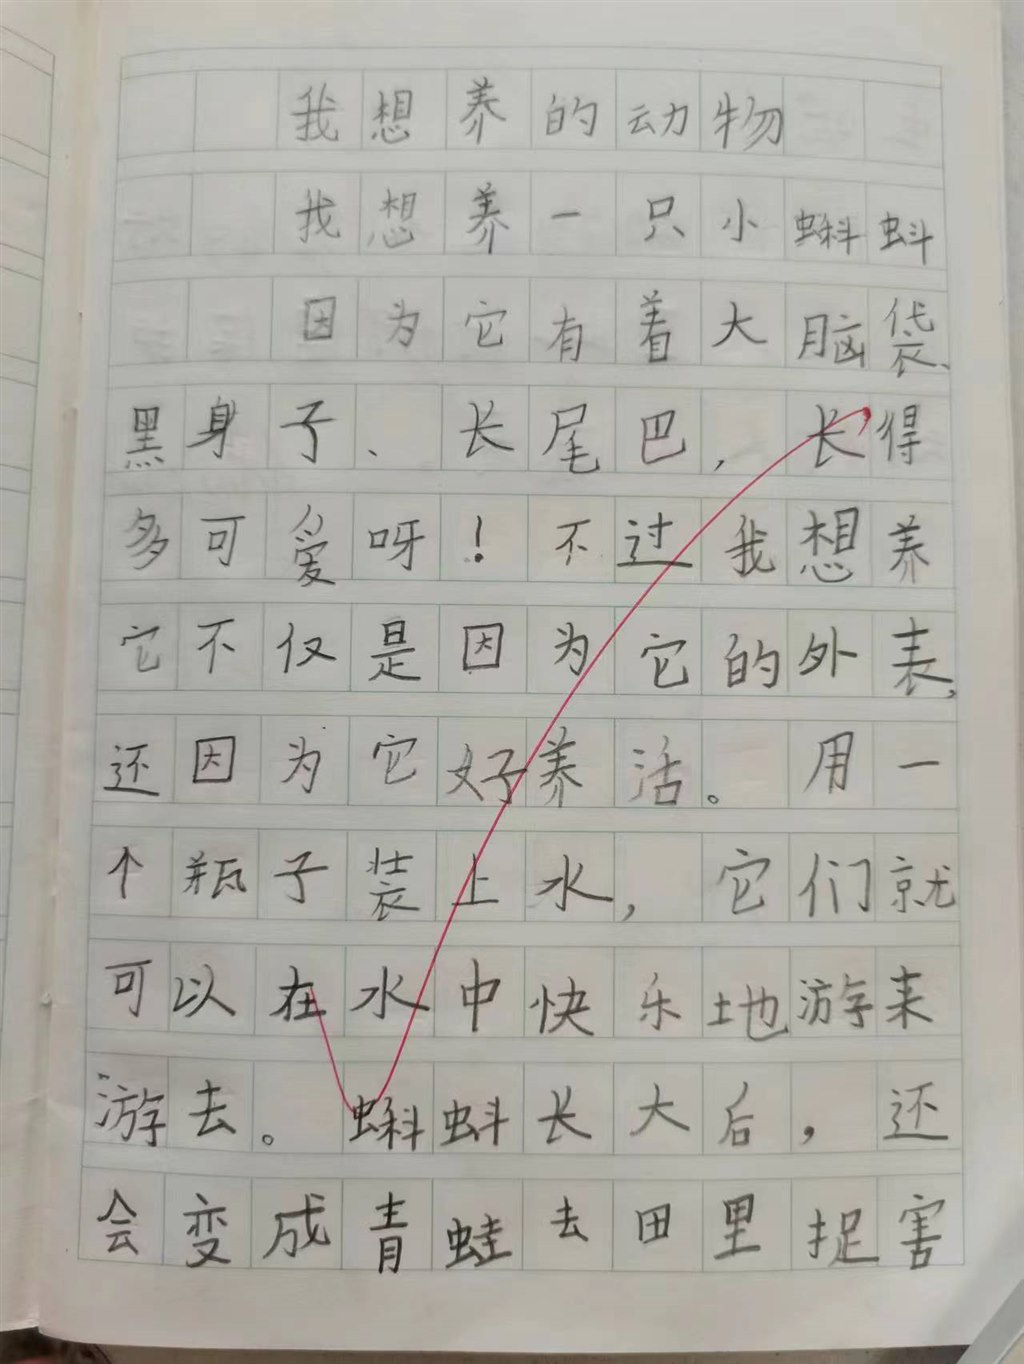 我想养的动物
我想养一只小蝌蚪
因为它有着大脑袋、
黑身子、长尾巴，长得
多可爱呀！不过我想养
它不仅是因为它的外表，
还因为它好养活。用一
个瓶子装上水，它们就
可以在水中快乐地游来
游去。蝌蚪长大后，还
会变成青蛙去田里捉害